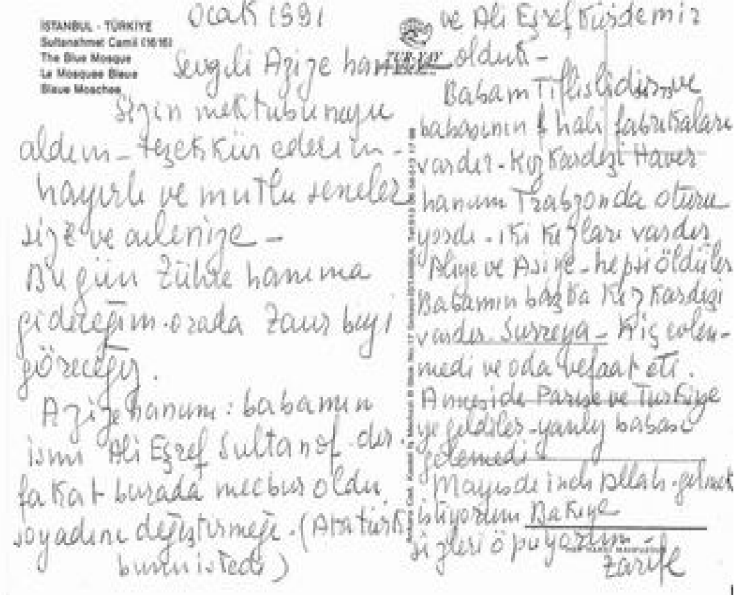 İSTANBUL - TÜRKİYE
Sultanahmet Camii (1616)
The Blue Mosque
La Mosquee Bleue
Blaue Moschee
Ocak 1991
Sevgili Azize hanım
Sizin mektubunuzu
aldım - teşekkür ederim -
hayırlı ve mutlu seneler
size ve ailenize -
Bugün Zühre hanıma
gideceğim. orada Zaur beyi
göreceğiz.
Azize hanım: babamın
ismi Ali Eşref Sultanof dır.
fakat burada mecbur oldu
soyadını değiştirmeğe. (Atatürk
bunu istedi)
TÜR-YAY
ve Ali Eşref Kürdemir
olduk -
Babam Tiflislidir ve
babasının halı fabrikaları
vardır - Kız Kardeşi Haver
hanım Trabzonda oturu
yordı - iki kızları vardır
Aliye ve Asiye - hepsi öldüler
Babamın başka Kız Kardeşi
vardır. Surreya - hiç evlen-
medi ve oda vefaat eti.
Annesi de Parise ve Turkiye
ye geldiler - yanlız babası
gelemedi
Mayısde inch Allah - gelmek
istiyorum Bakıye
sizleri öpüyorum -
Zarife